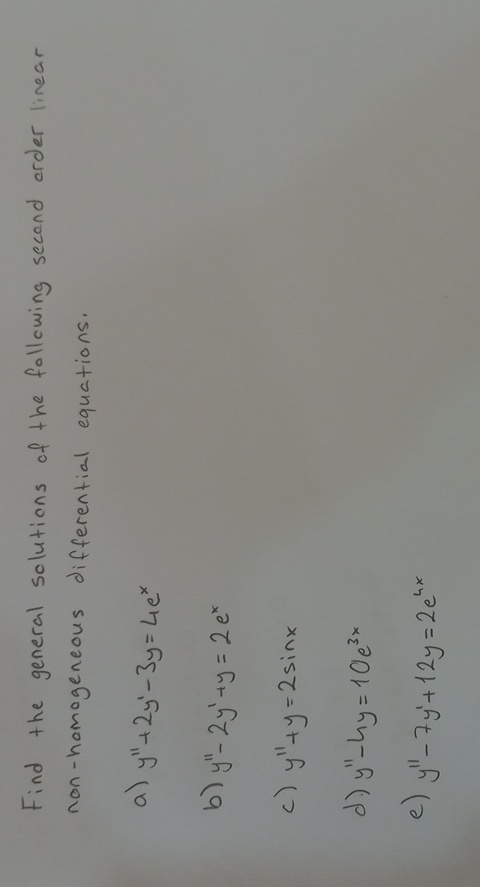 Find the general solutions of the following second order linear
non-homogeneous differential equations.
a) y''+2y'-3y=4eˣ
b) y''-2y'+y=2eˣ
c) y''+y=2sinx
d) y''-4y=10e³ˣ
e) y''-7y'+12y=2e⁴ˣ